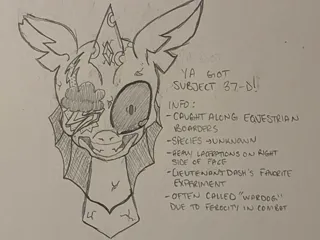 YA GOT
SUBJECT 37-D!!
INFO:
-CAUGHT ALONG EQUESTRIAN
BOARDERS
-SPECIES→UNKNOWN
-HEAVY LACERATIONS ON RIGHT
SIDE OF FACE
-LIEUTENANT DASH'S FAVORITE
EXPERIMENT
-OFTEN CALLED "WARDOG"
DUE TO FEROCITY IN COMBAT